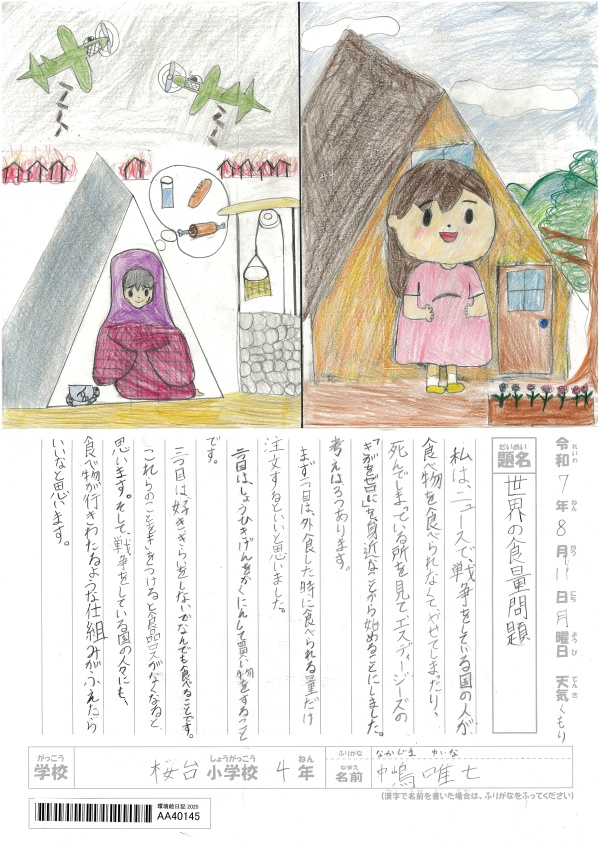 令和7年8月11日月曜日 天気くもり
れいわ ねん がつ にち ようび てんき
だいめい
題名 世界の食量問題
私は、ニュースで戦争をしている国の人が
食べ物を食べられなくてやせてしまったり、
死んでしまっている所を見てエスディージーズの
「きがをゼロに」を身近なことから始めることにしました。
考えは3つあります。
まず一つ目は、外食した時に食べられる量だけ
注文するといいと思いました。
二つ目は、しょうひきげんをかくにんして買い物をすること
です。
三つ目は好ききらいをしないでなんでも食べることです。
これらのことをきをつけると食品ロスがなくなると
思います。そして、戦争をしている国の人々にも、
食べ物が行きわたるような仕組みがふえたら
いいなと思います。
がっこう しょうがっこう ねん
学校 桜台小学校 4年
ふりがな なかじま ゆいな
なまえ
名前 中嶋 唯七
(漢字で名前を書いた場合は、ふりがなをふってください)
環境絵日記 2025
AA40145